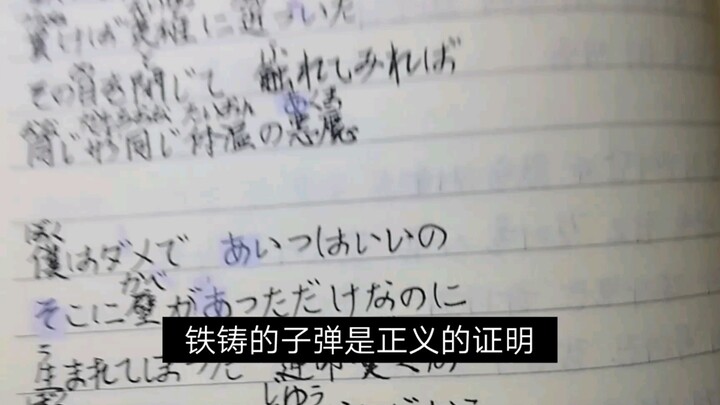 けば英雄に近づいた
その目を閉じて 触れてみれば
たいおん あくま
同じ 同じ体温の悪魔
ぼく
僕はダメで あいつはいいの
かべ
そこに壁があっただけなのに
铁铸的子弹是正义的证明
う
生まれてしまった
じゆう